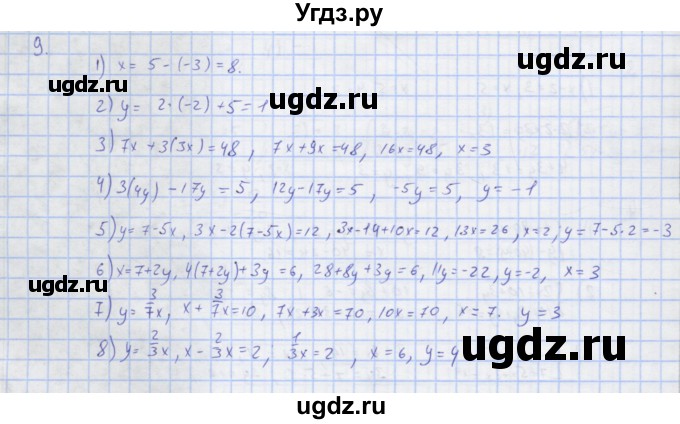 Угдз.ру
9.
1) x = 5 - (-3) = 8.
2) y = 2·(-2) + 5 = 1
3) 7x + 3(3x) = 48, 7x + 9x = 48, 16x = 48, x = 3
4) 3(4y) - 17y = 5, 12y - 17y = 5, -5y = 5, y = -1
5) y = 7-5x, 3x - 2(7-5x) = 12, 3x - 14 + 10x = 12, 13x = 26, x = 2, y = 7-5·2 = -3
6) x = 7+2y, 4(7+2y) + 3y = 6, 28 + 8y + 3y = 6, 11y = -22, y = -2, x = 3
7) y = 3/7x, x + 3/7x = 10, 7x + 3x = 70, 10x = 70, x = 7. y = 3
8) y = 2/3x, x - 2/3x = 2, 1/3x = 2, x = 6, y = 4
ugdz.ru
ugdz.ru
ugdz.ru
ugdz.ru
ugdz.ru
ugdz.ru
ugdz.ru
ugdz.ru
ugdz.ru